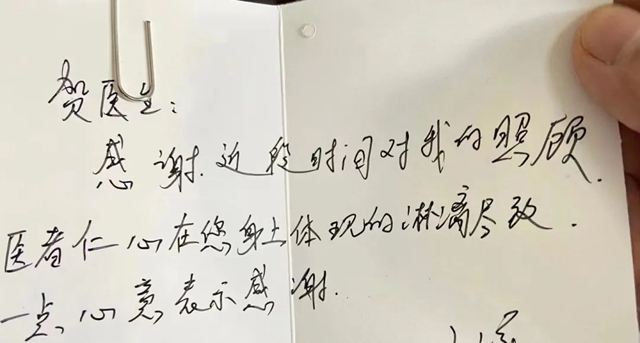 贺医生:
感谢.近段时间对我的照顾.
医者仁心在您身上体现的淋漓尽致.
一点心意表示感谢.